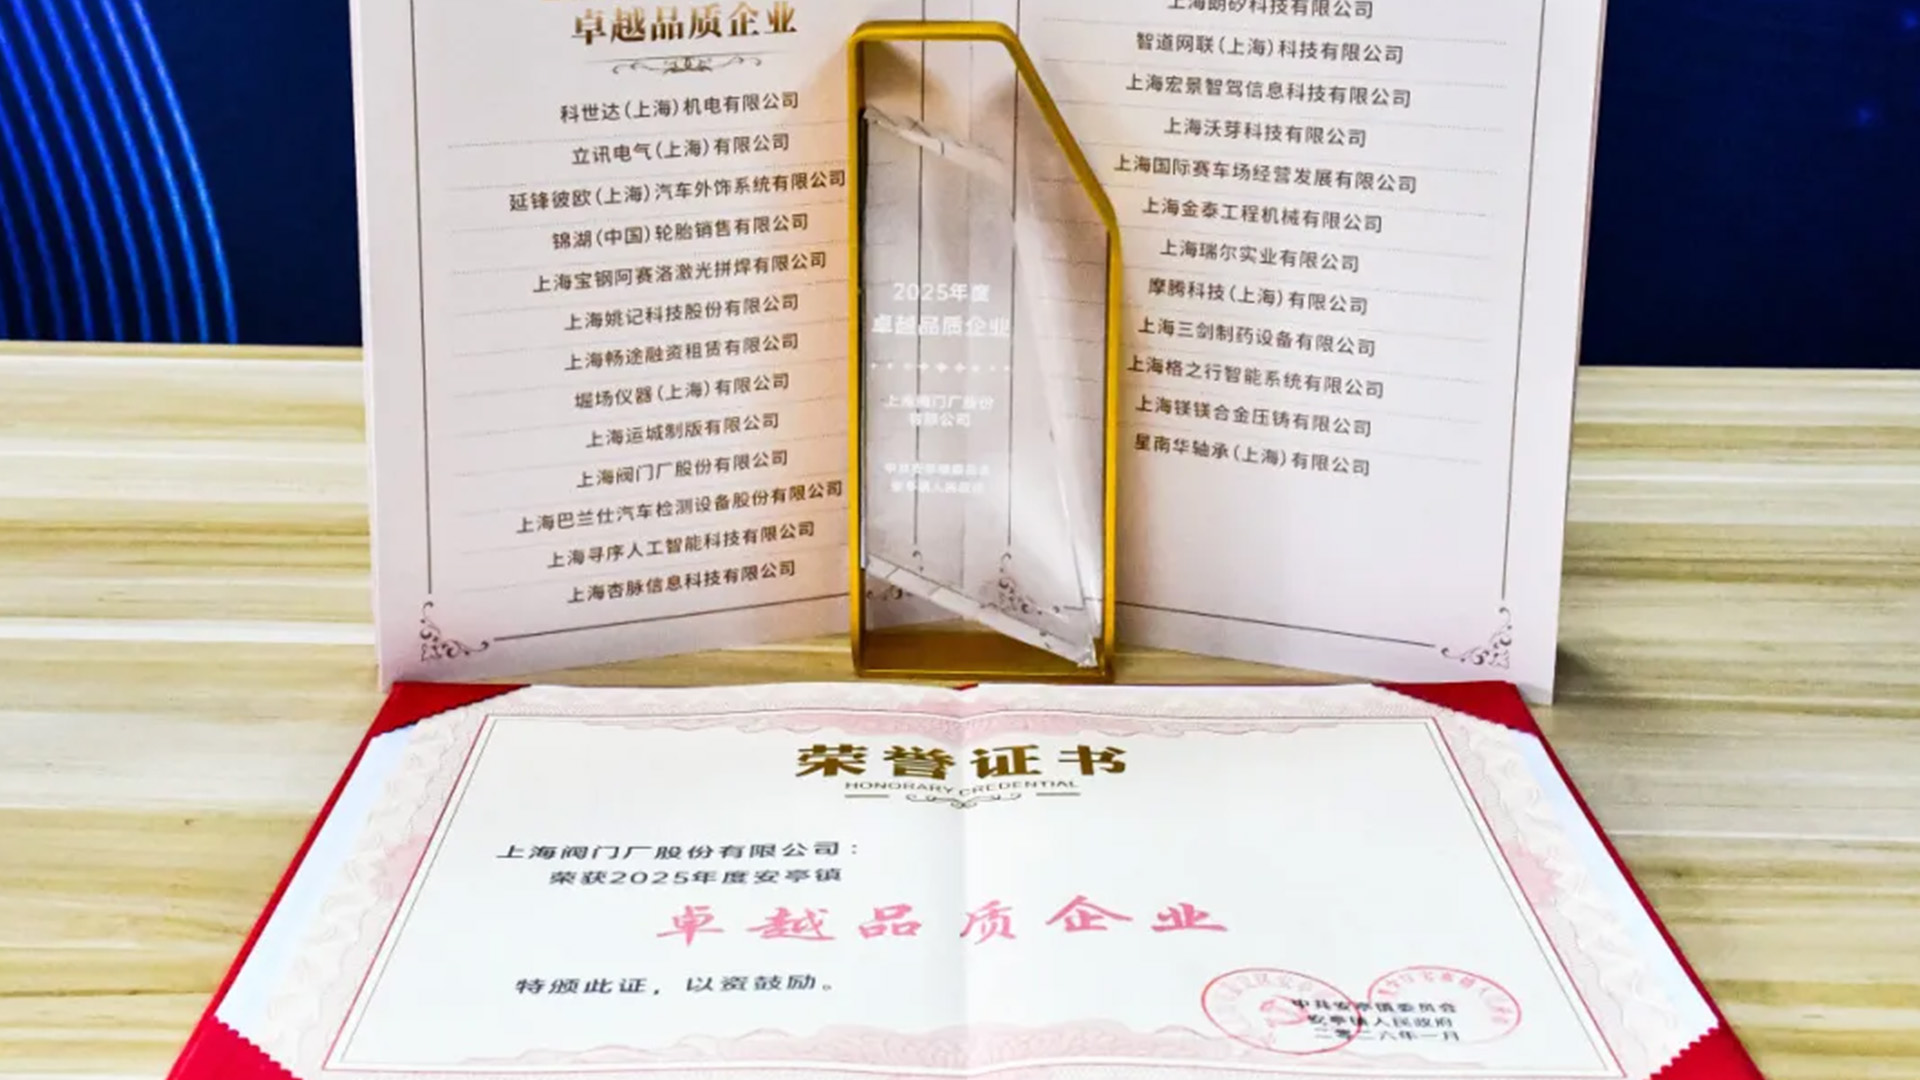 卓越品质企业
科世达(上海)机电有限公司
立讯电气(上海)有限公司
延锋彼欧(上海)汽车外饰系统有限公司
锦湖(中国)轮胎销售有限公司
上海宝钢阿赛洛激光拼焊有限公司
上海姚记科技股份有限公司
上海畅途融资租赁有限公司
堀场仪器(上海)有限公司
上海运城制版有限公司
上海阀门厂股份有限公司
上海巴兰仕汽车检测设备股份有限公司
上海寻序人工智能科技有限公司
上海杏脉信息科技有限公司
上海朗矽科技有限公司
智道网联(上海)科技有限公司
上海宏景智驾信息科技有限公司
上海沃芽科技有限公司
上海国际赛车场经营发展有限公司
上海金泰工程机械有限公司
上海瑞尔实业有限公司
摩腾科技(上海)有限公司
上海三剑制药设备有限公司
上海格之行智能系统有限公司
上海镁镁合金压铸有限公司
星南华轴承(上海)有限公司
2025年度
卓越品质企业
上海阀门厂股份
有限公司
荣誉证书
HONORARY CREDENTIAL
上海阀门厂股份有限公司：
荣获2025年度安亭镇
卓越品质企业
特颁此证，以资鼓励。
中共安亭镇委员会
安亭镇人民政府
二零二六年一月